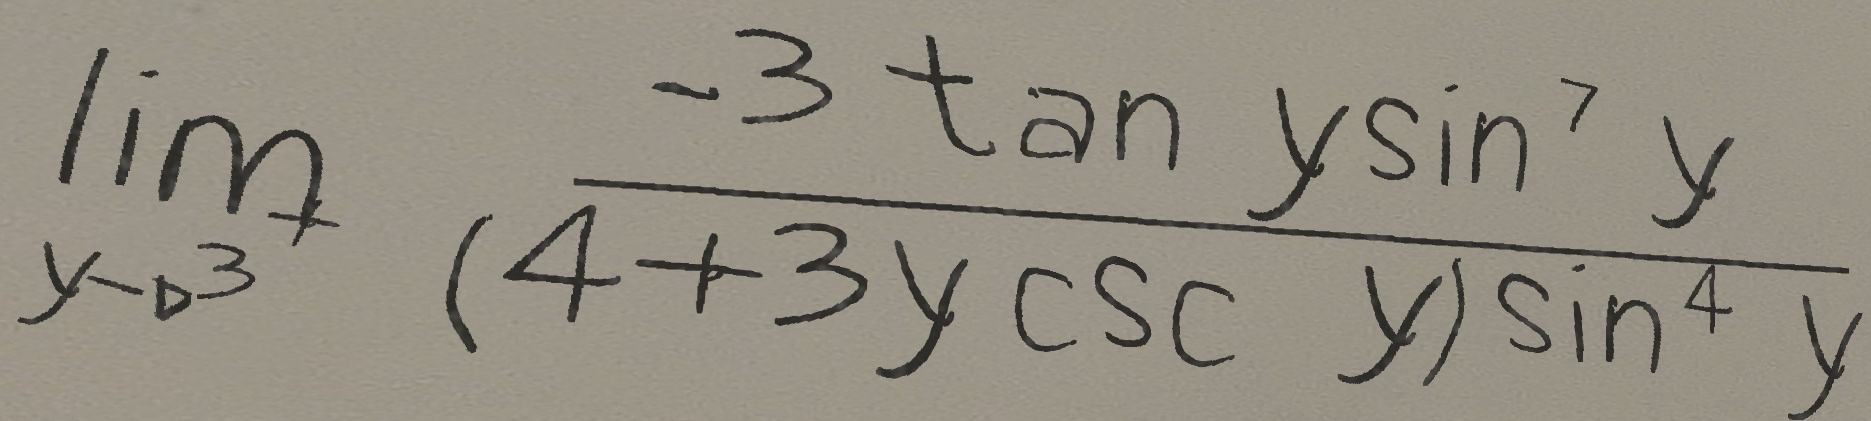 \lim_{y \to 3^+} \frac{-3 \tan y \sin^7 y}{(4+3y \csc y) \sin^4 y}